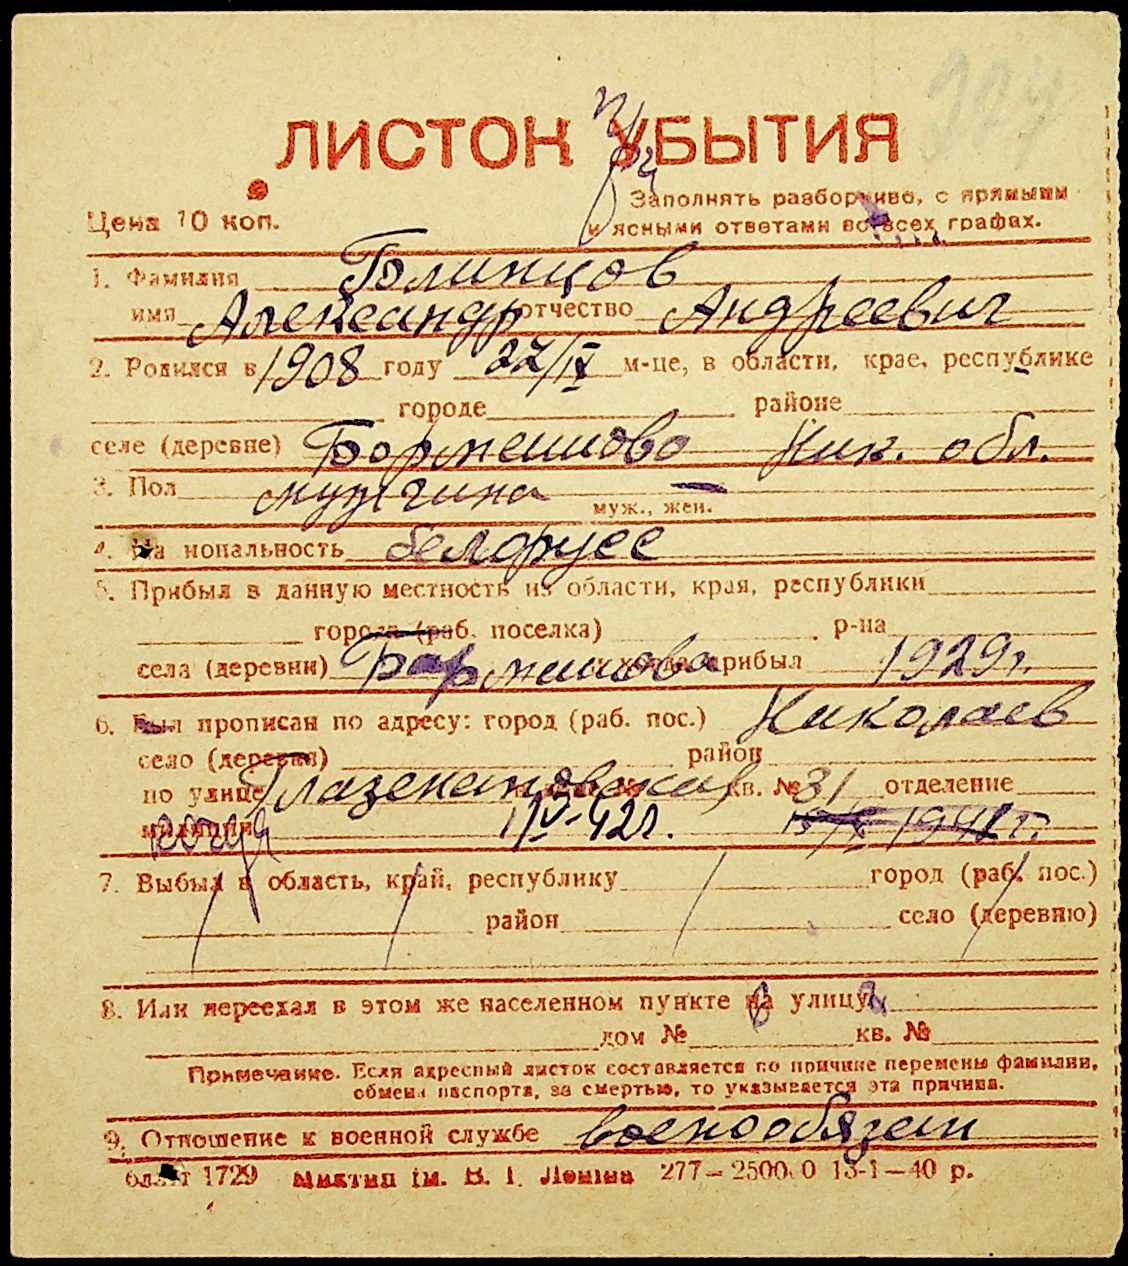 ЛИСТОК УБЫТИЯ
Цена 10 коп.
Заполнять разборчиво, с прямыми
и ясными ответами во всех графах.
1. Фамилия Голинцов
имя Александр отчество Андреевич
2. Родился в 1908 году 22/IX м-це, в области, крае, республике
городе районе
селе (деревне) Бармешово Ник. обл.
3. Пол мужчина
муж., жен.
4. Национальность белорусс
5. Прибыл в данную местность из области, края, республики
города (раб. поселка) р-на
села (деревни) Бармешова прибыл 1929 г.
6. Был прописан по адресу: город (раб. пос.) Николаев
село (деревня) район
по улице Глазенаповская кв. № 31 отделение
милиции 1/V-42г.
7. Выбыл в область, край, республику город (раб. пос.)
район село (деревню)
8. Или переехал в этом же населенном пункте на улицу
дом № кв. №
Примечание. Если адресный листок составляется по причине перемены фамилии,
обмена паспорта, за смертью, то указывается эта причина.
9. Отношение к военной службе военообязан
1729 Миктип ім. В. І. Леніна 277—2500.0 13-1—40 р.